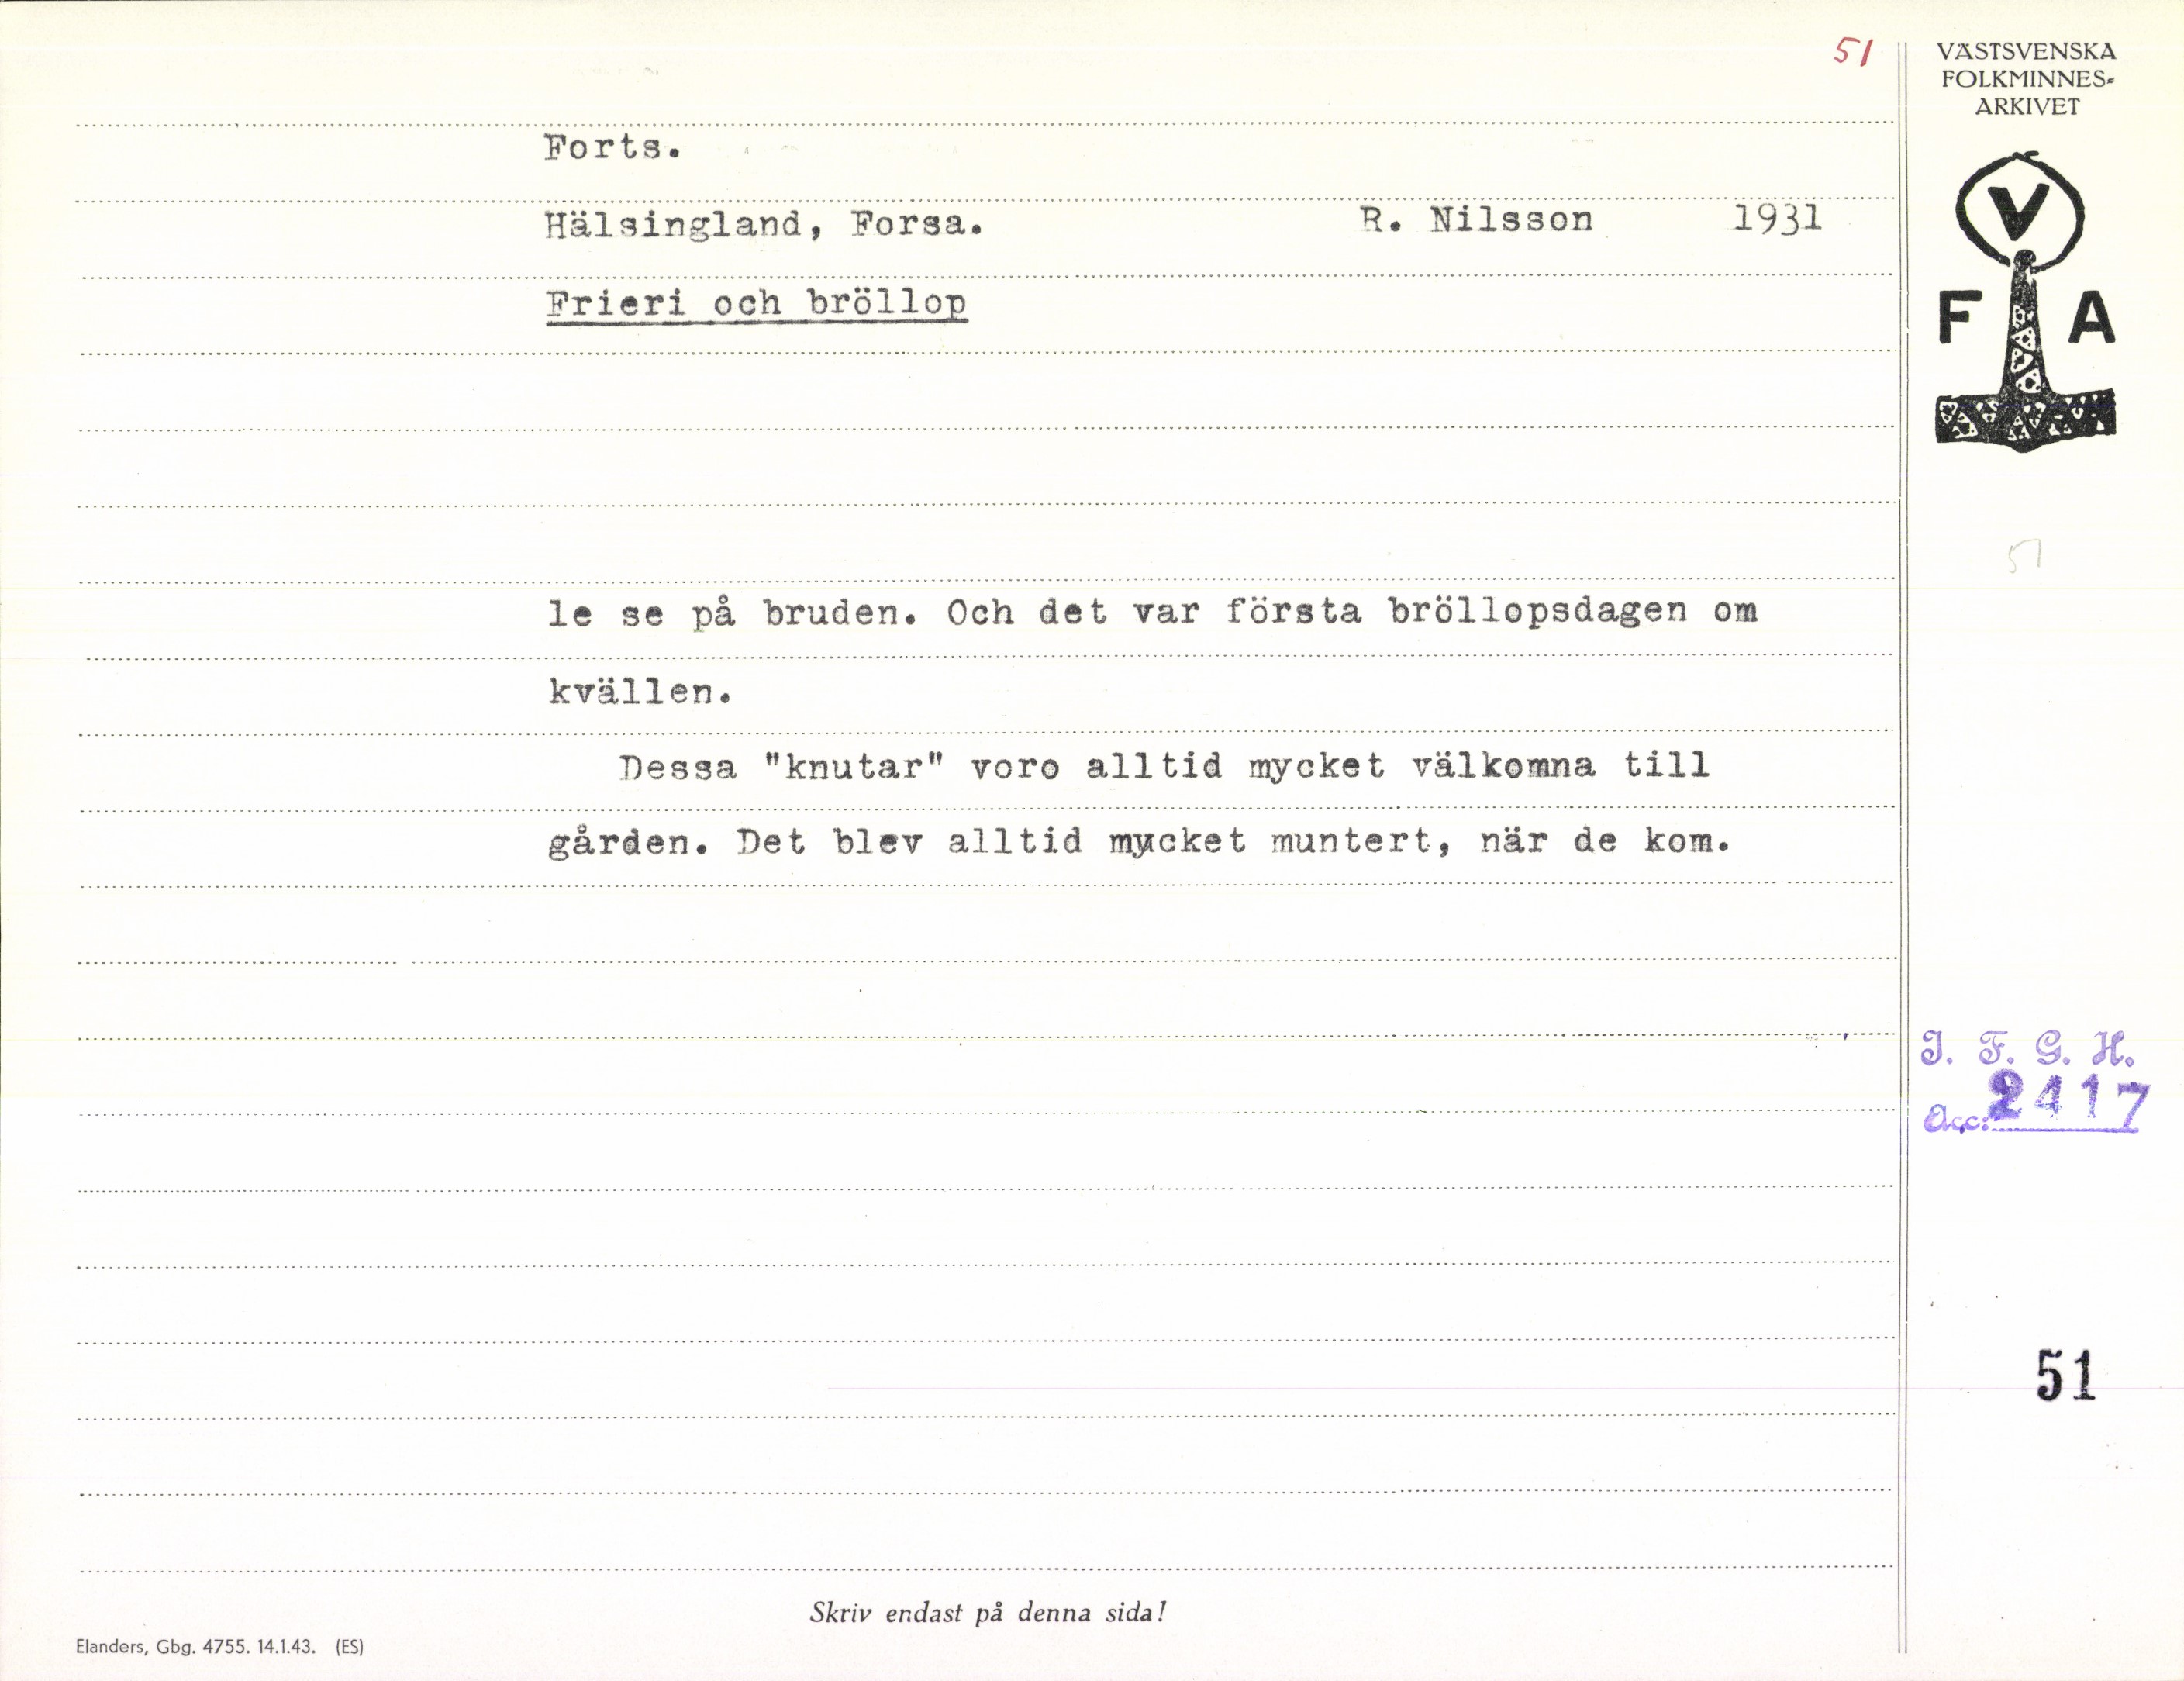 51
VÄSTSVENSKA
FOLKMINNES=
ARKIVET
Forts.
Hälsingland, Forsa. R. Nilsson 1931
V
F A
Frieri och bröllop
51
le se på bruden. Och det var första bröllopsdagen om
kvällen.
Dessa "knutar" voro alltid mycket välkomna till
gården. Det blev alltid mycket muntert, när de kom.
I. F. G. H.
Acc: 2417
51
Skriv endast på denna sida!
Elanders, Gbg. 4755. 14.1.43. (ES)